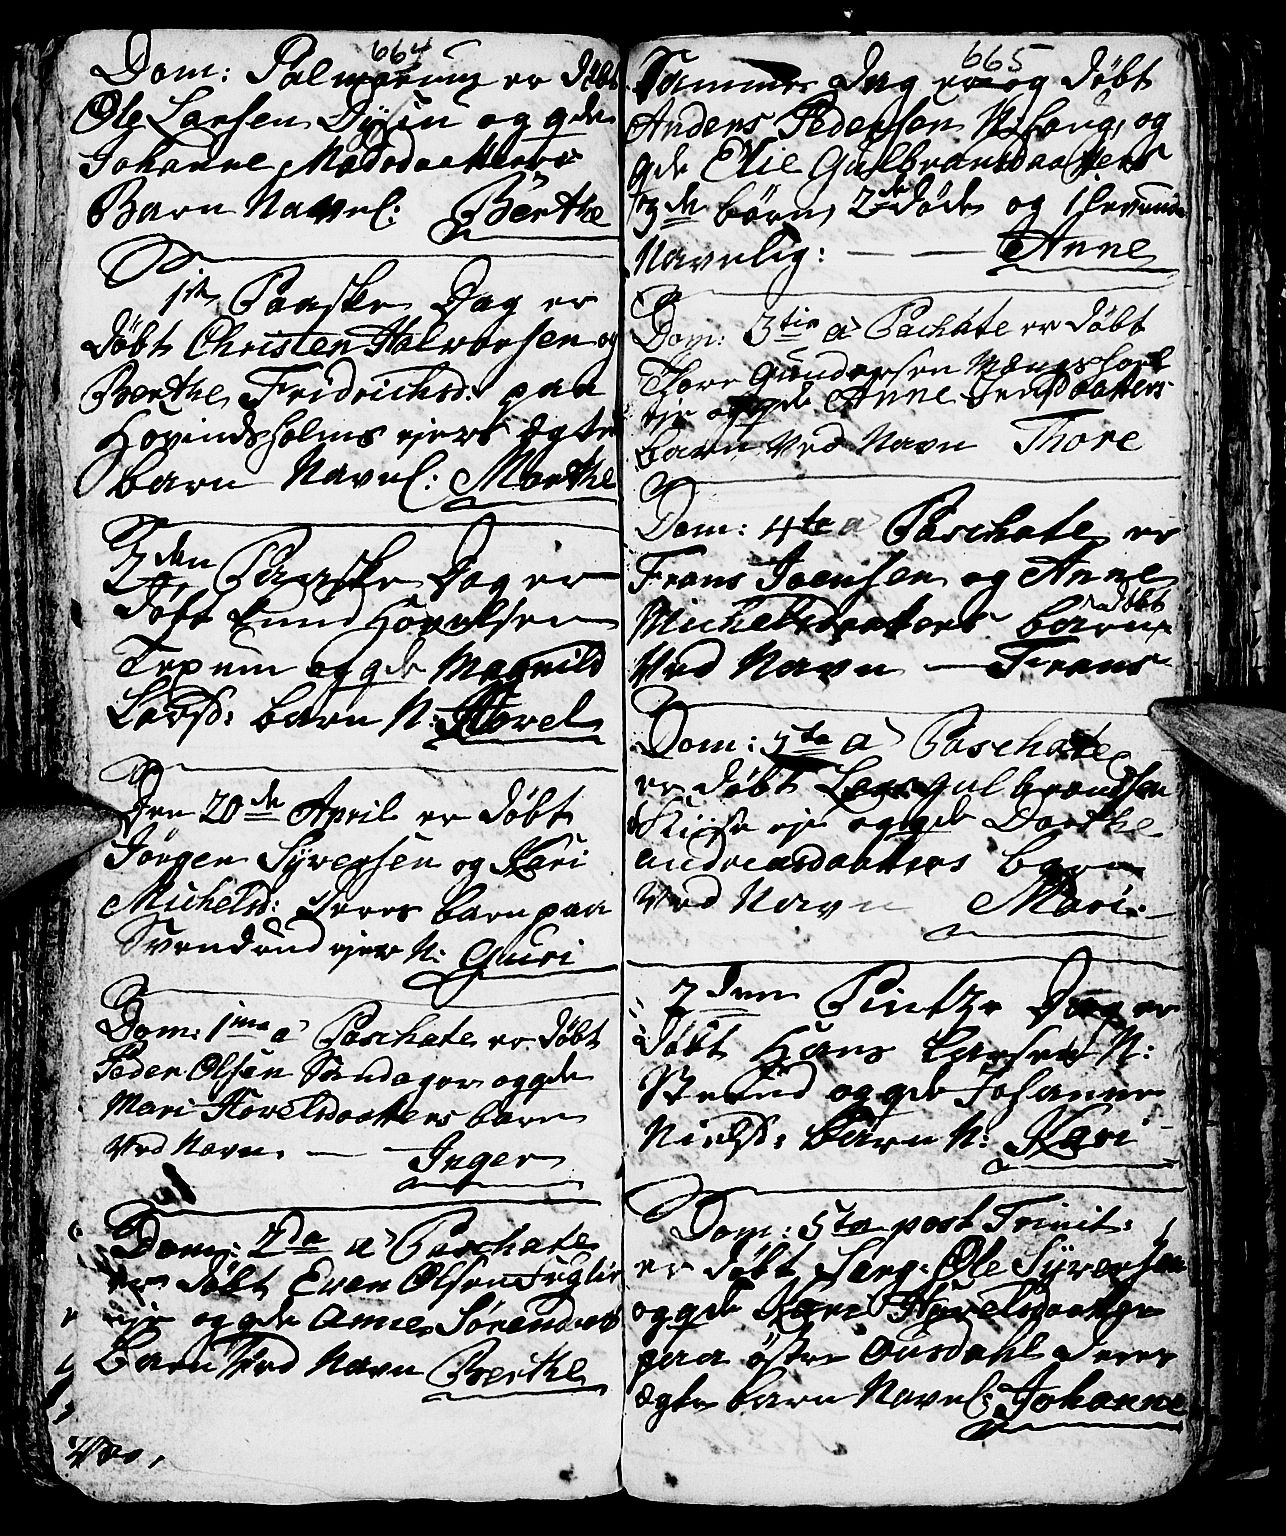 664
Dom: Palmarum er døbt
Ole Larsen Dÿstu og gde
Johanne Madsdaatters
Barn Navnl: Berthe
1ste Paaske Dag er
døbt Christen Halvorsen og
Berthe Fridrichsd: paa
Hovindsholms ejers Ægte
barn Navnl: Marthe
3den Paaske Dag er
døbt Knud Hovelsen
og gde Magnild
Larsd: barn N: Hovel
Den 20de April er døbt
Jørgen Sÿversen og Kari
Michelsd: deres barn paa
Svendsrud ejer N: Guri
Dom: 1ma a Paschate er døbt
Peder Olsen Sandager og gde
Mari Hovelsdaatters barn
Ved Navn. — — Inger
Dom: 2da a Paschate
er døbt Even Olsen
eje og gde Anne Sørensd:
Barn Ved Navn Berthe
665
Samme Dag er og døbt
Anders Pedersen N: Houg, og
gde Elie Gulbransdaatters
3de børn, 2de døde og 1 levende
Navnlig: — — Anne
Dom: 3tia a Pachate er døbt
Thore Gundersen
eje og gde Anne Jensdaatters
barn Ved Navn Thore
Dom: 4ta a Paschate er
Frans Joensen og Anne
Michelsdaatters barn døbt
Ved Navn — Frans
Dom: 5ta a Paschate
er døbt Lars Gulbrandsen
eje og gde Dorthe
Andreasdaatters barn
Ved Navn Mari
2den Pintze Dag er
døbt Hans Larsen N:
og gde Johanne
Nielsd: barn N: Kari
Dom: 5ta post Trinit:
er døbt Serg: Ole Sÿversen
og gde Kari Hovelsdaatter
paa østre Ousdahl deres
ægte barn Navnl: Johanne